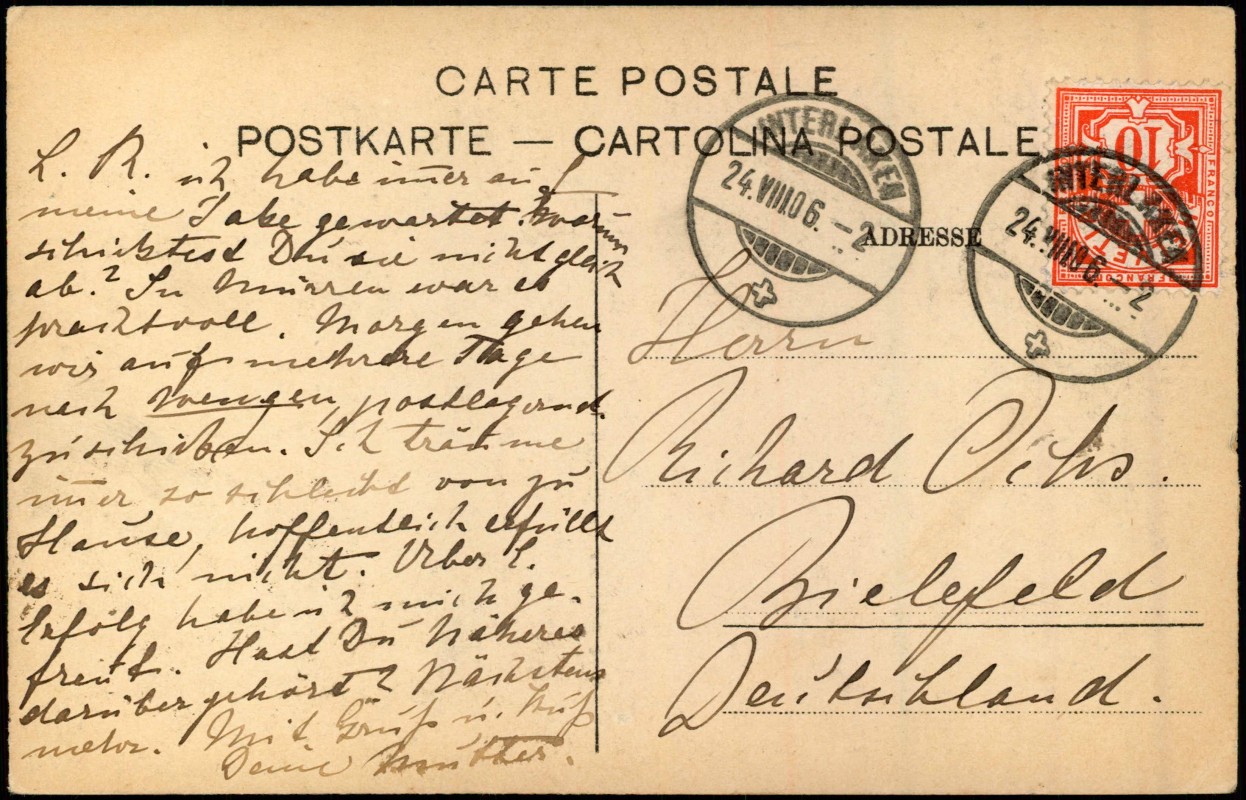 CARTE POSTALE
POSTKARTE — CARTOLINA POSTALE
L. R. ich habe im̄er auf
meine Jake gewartet. Warum
schicktest Du sie nicht gleich
ab? In Mürren war es
prachtvoll. Morgen gehen
wir auf mehrere Tage
nach Wengen, postlagernd
zu schicken. Ich träume
im̄er so schlecht von zu
Hause, hoffentlich erfüllt
es sich nicht. Ueber L.
Erfolg habe ich mich ge-
freut. Hast Du Näheres
darüber gehört? Nächstens
mehr. Mit Gruß u. Kuß
Deine Mutter.
INTERLAKEN
24.VIII.06.–2
ADRESSE
INTERLAKEN
24.VIII.06.–2
10
FRANCO
FRANCO
Herrn
Richard Ochs.
Bielefeld
Deutschland.